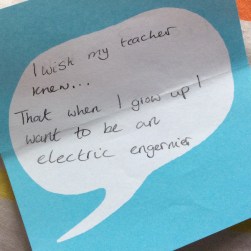 I wish my teacher
knew...
That when I grow up I
want to be an
electric engernier